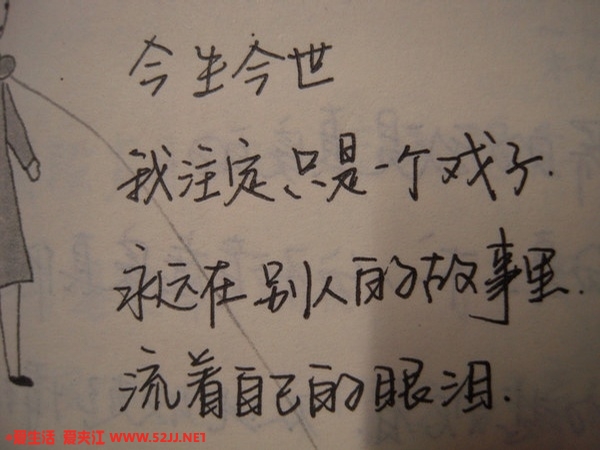 今生今世
我注定只是一个戏子.
永远在别人的故事里.
流着自己的眼泪.
爱生活 爱夹江 WWW.52JJ.NET